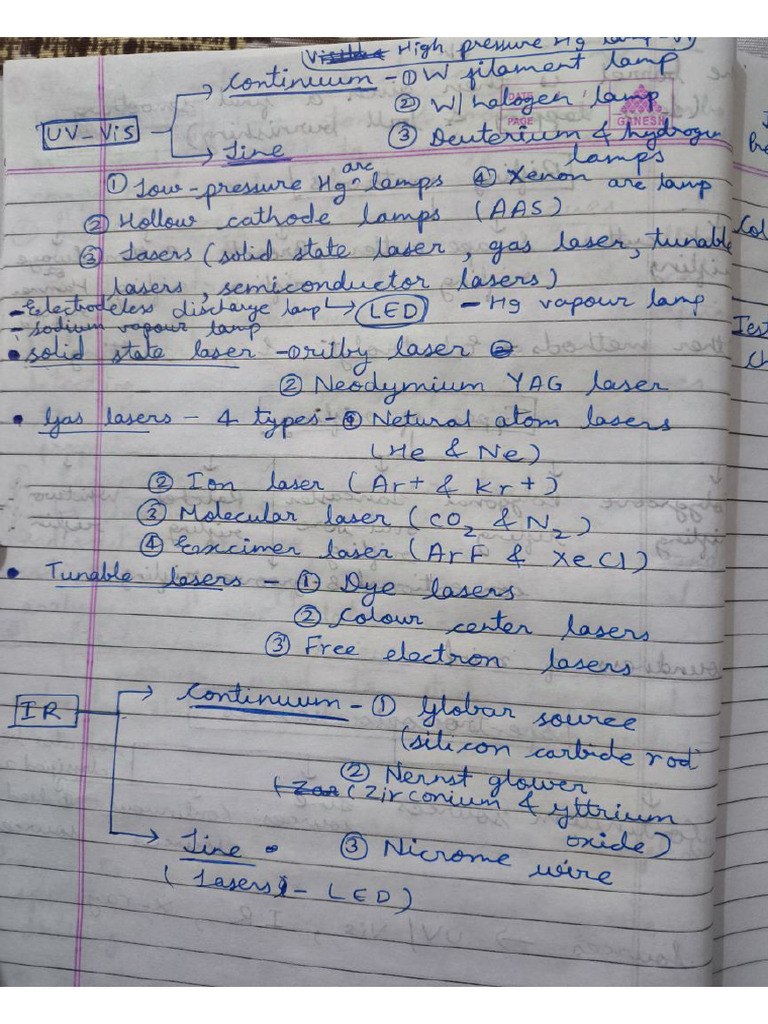 High pressure Hg lamp
Continuum - ① W filament lamp
② W/halogen lamp
DATE
PAGE
GANESH
UV-Vis
③ Deuterium & hydrogen
lamps
Line
① Low-pressure Hg arc lamps ④ Xenon arc lamp
② Hollow cathode lamps (AAS)
③ Lasers (solid state laser, gas laser, tunable
lasers, semiconductor lasers)
- Electrodeless discharge lamp ↳ LED - Hg vapour lamp
- sodium vapour lamp
• solid state laser -
② Neodymium YAG laser
• Gas lasers - 4 types - ① Netural atom lasers
(He & Ne)
② Ion laser (Ar+ & Kr+)
③ Molecular laser (CO2 & N2)
④ Excimer laser (ArF & XeCl)
• Tunable lasers - ① Dye lasers
② Colour center lasers
③ Free electron lasers
IR
Continuum - ① Globar source
(silicon carbide rod
② Nernst glower
(Zirconium & yttrium
oxide)
Line ③ Nicrome wire
(Lasers - LED)
Col
Test